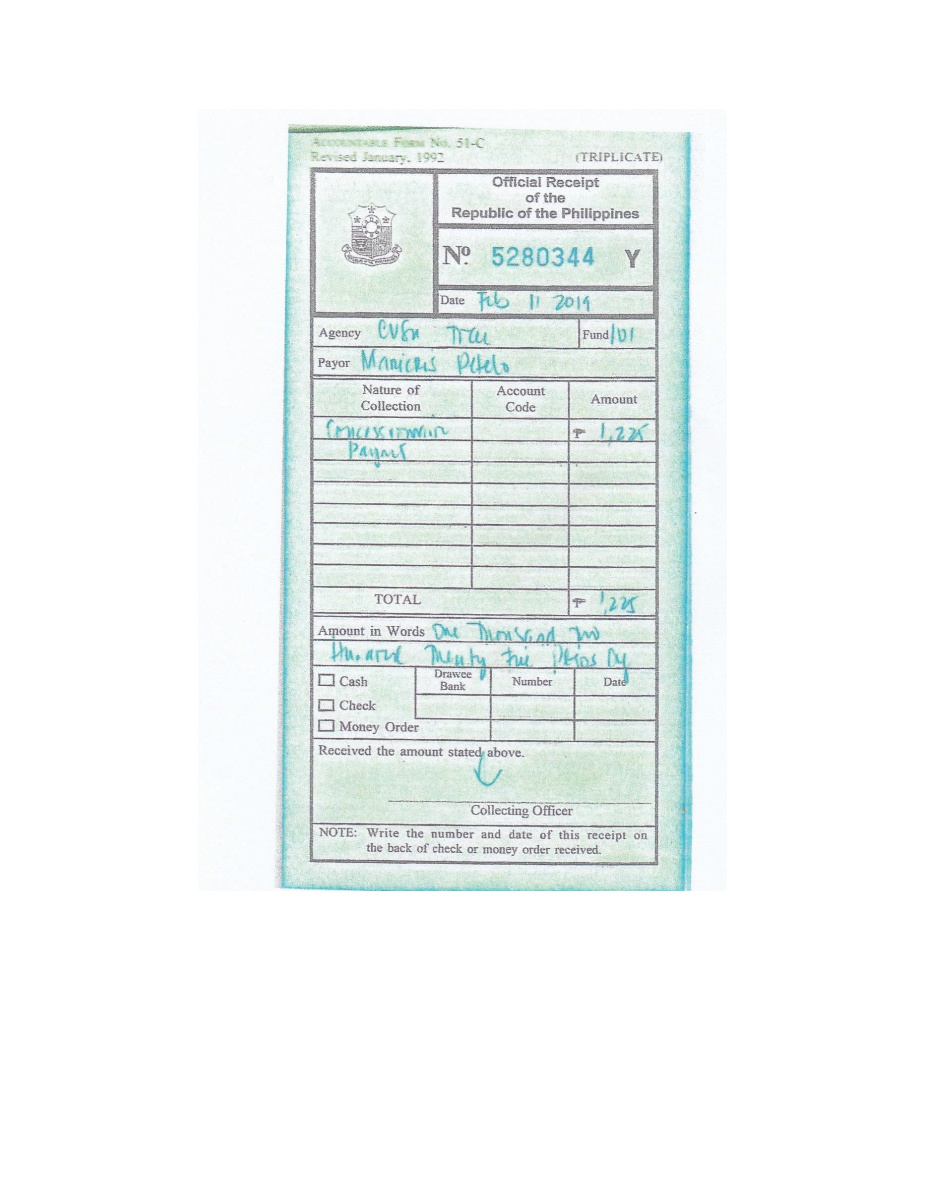 ACCOUNTABLE FORM No. 51-C
Revised January, 1992
(TRIPLICATE)
Official Receipt
of the
Republic of the Philippines
Nº 5280344 Y
Date Feb 11 2019
Agency CVSU
Fund 101
Payor Maricris
Nature of Collection Account Code Amount
₱ 1,225
Payment
TOTAL ₱ 1,225
Amount in Words One Thousand Two
Hundred Twenty Five Pesos Only
Cash Drawee Bank Number Date
Check
Money Order
Received the amount stated above.
Collecting Officer
NOTE: Write the number and date of this receipt on
the back of check or money order received.